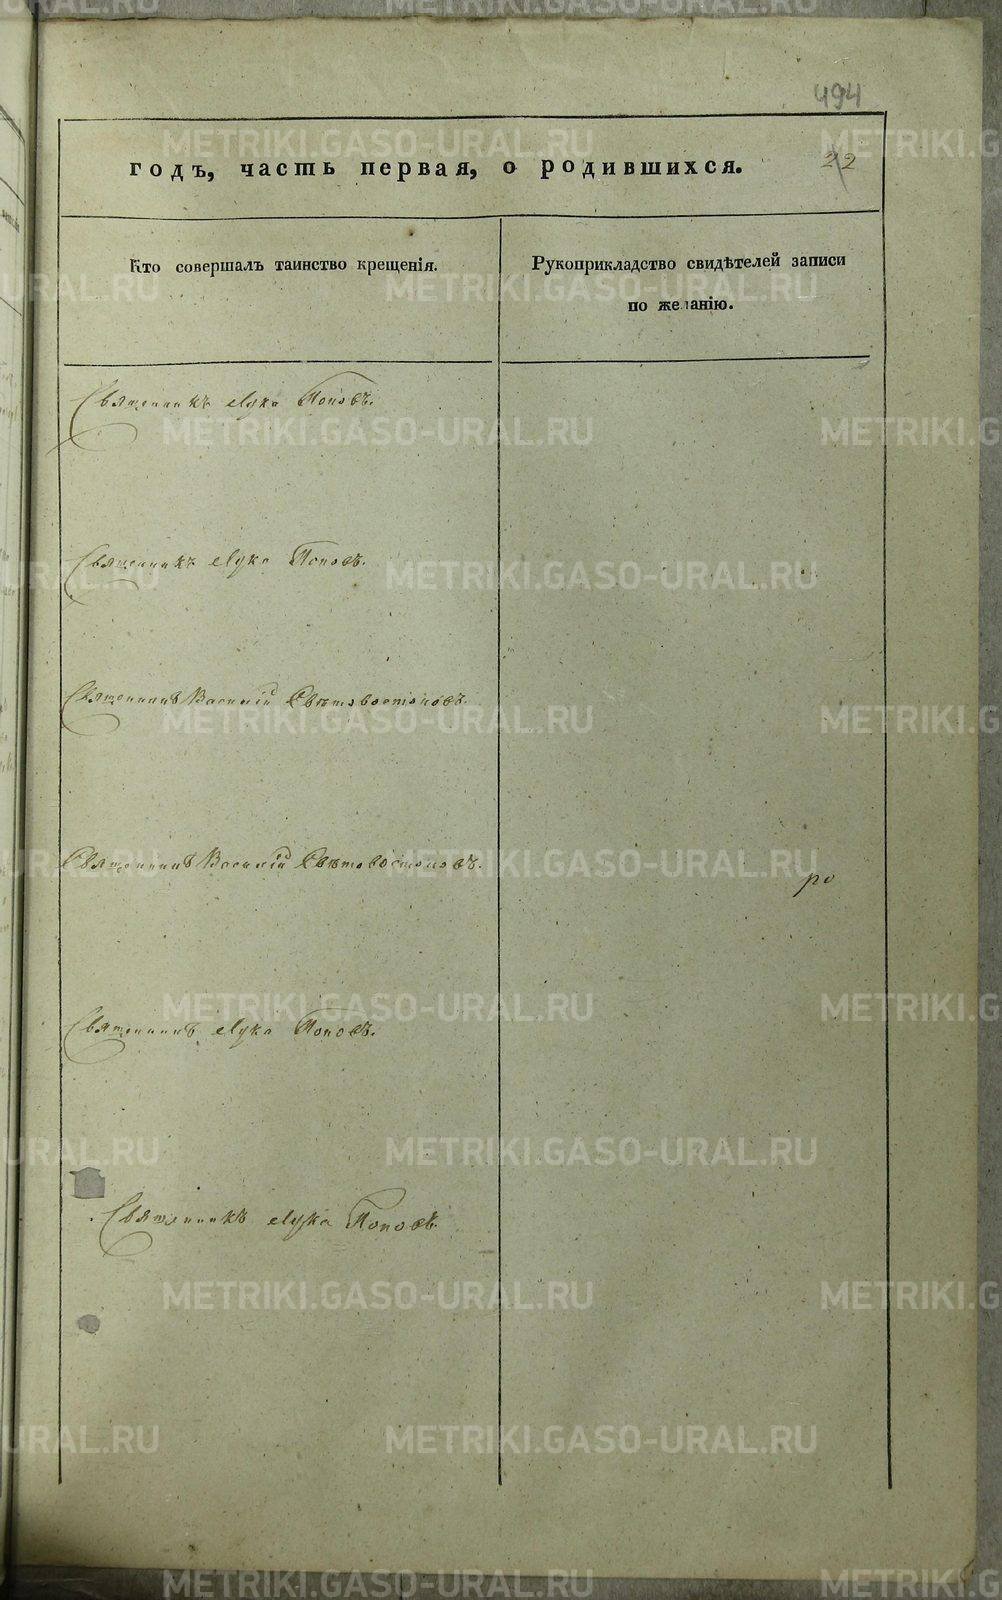 494
годъ, часть первая, о родившихся.
22
Кто совершалъ таинство крещенія.
Рукоприкладство свидѣтелей записи
по желанію.
Священникъ Лука Поповъ.
Священникъ Лука Поповъ.
Священникъ Василій Свѣтовостоковъ.
Священникъ Василій Свѣтовостоковъ.
ро
Священникъ Лука Поповъ.
Священникъ Лука Поповъ.
METRIKI.GASO-URAL.RU